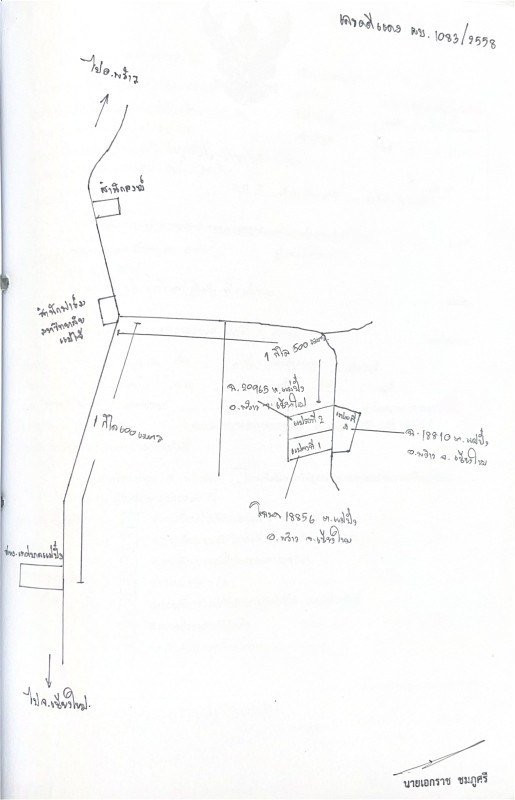 เลขคดีแดง ผบ. 1083/2558
ไป อ.พร้าว
สำนักสงฆ์
สำนักฟาร์ม
มหาวิทยาลัย
แม่โจ้
1 กิโล 500 เมตร
ฉ. 20965 ต.แม่ปั๋ง
อ.พร้าว จ.เชียงใหม่
แปลงที่ 2
แปลงที่
3
แปลงที่ 1
ฉ. 18810 ต.แม่ปั๋ง
อ.พร้าว จ.เชียงใหม่
1 กิโล 600 เมตร
โฉนด 18856 ต.แม่ปั๋ง
อ.พร้าว จ.เชียงใหม่
เทศบาลแม่ปั๋ง
ไป จ.เชียงใหม่
นายเอกราช ชมภูศรี